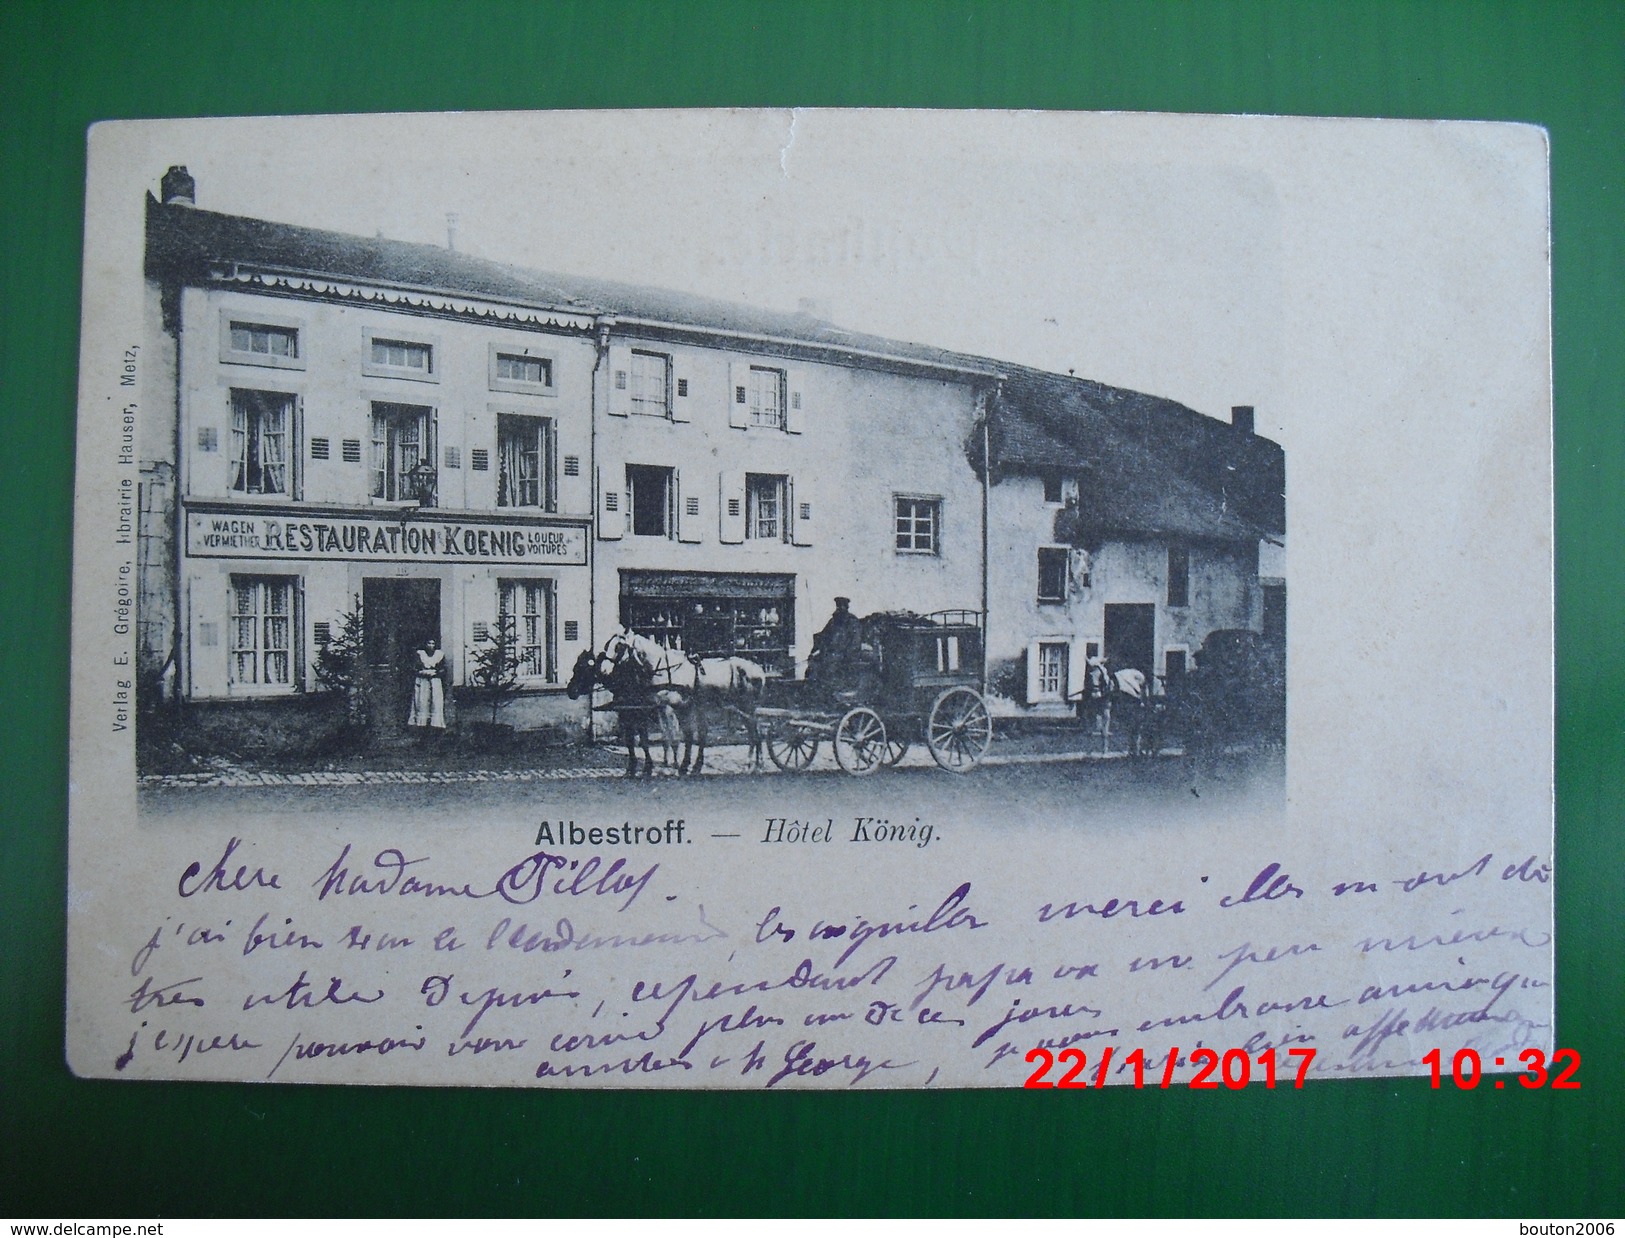 Verlag E. Grégoire, librairie Hauser, Metz,
WAGEN VERMIETHER RESTAURATION KOENIG LOUEUR VOITURES
Albestroff. — Hôtel König.
chère Madame
j'ai bien les aiguilles merci elles m'ont été
très utile Depuis, cependant papa va un peu mieux
j'espère pouvoir vous écrire plus un De ces jours je vous embrasse ainsi que
George, bien affectueuse
22/1/2017 10:32
www.delcampe.net
bouton2006